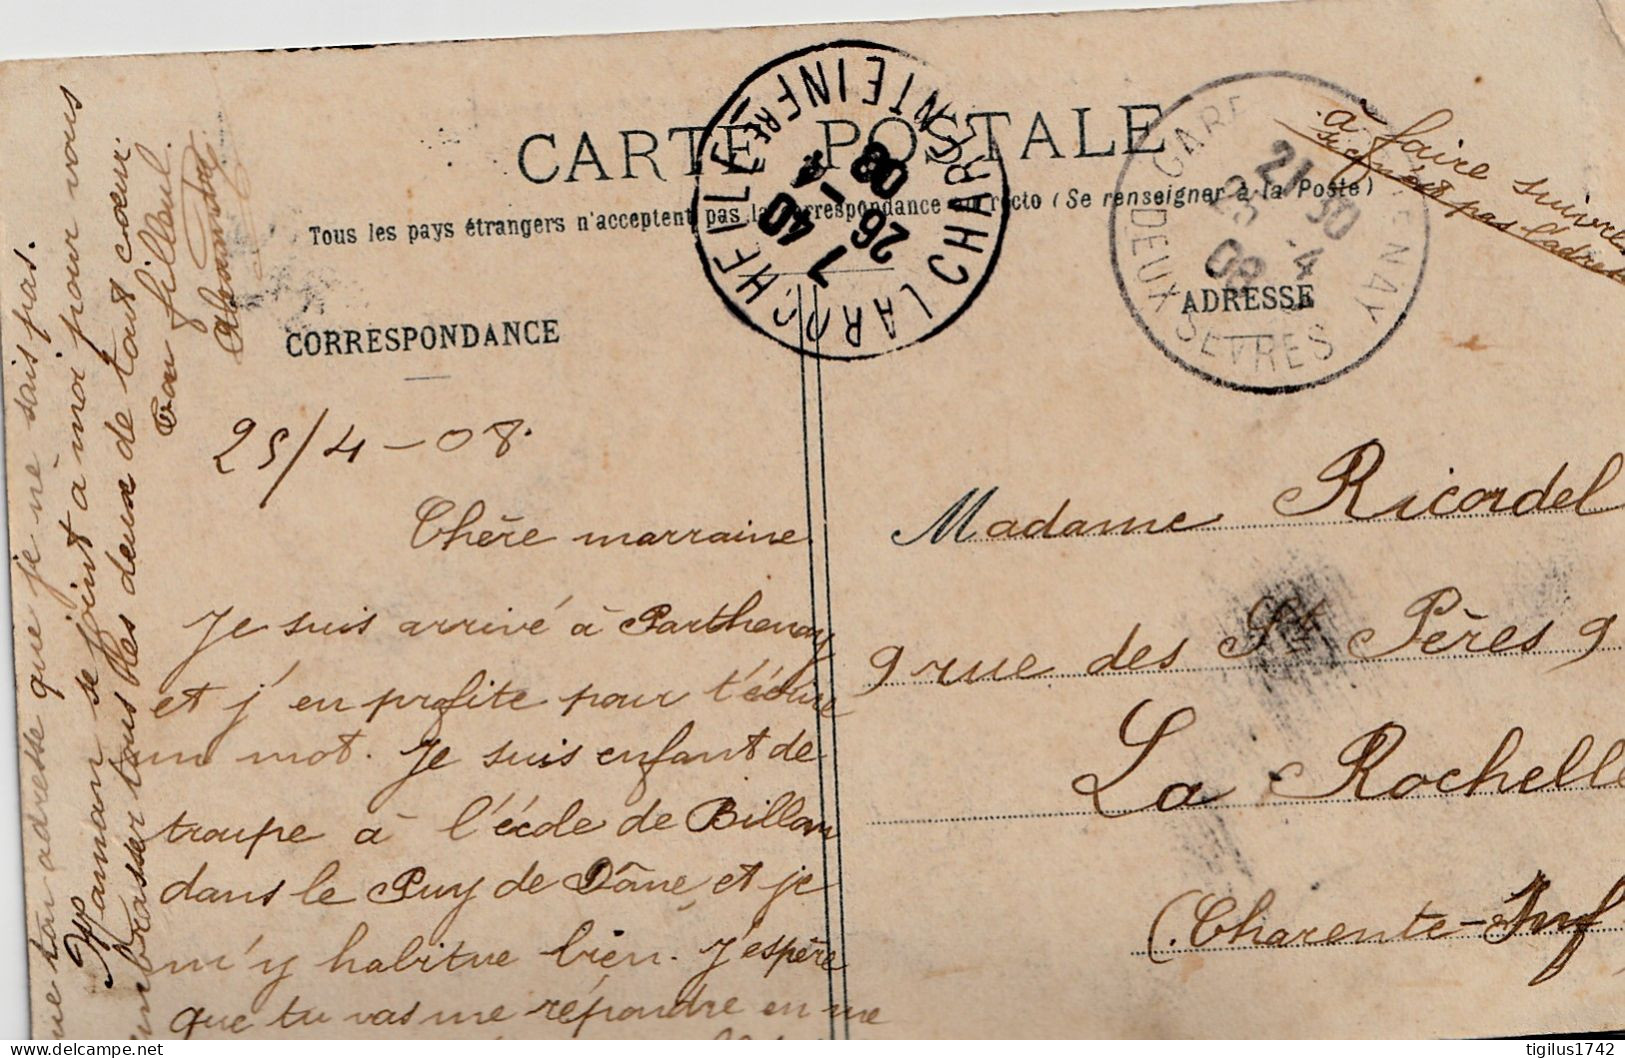 CARTE POSTALE
Tous les pays étrangers n'acceptent pas la correspondance au recto (Se renseigner à la Poste)
CORRESPONDANCE
ADRESSE
LA ROCHELLE
CHARENTE INFRE
7 40
26 - 4
08
GARE
PARTHENAY
DEUX SEVRES
21 30
25 - 4
08
à faire suivre
pas l'adresse
25/4 - 08.
Chère marraine
Je suis arrivé à Parthenay
et j'en profite pour t'écrire
un mot. Je suis enfant de
troupe à l'école de Billom
dans le Puy de Dôme, et je
m'y habitue bien. J'espère
que tu vas me répondre en me
ton adresse que je ne sais pas.
Maman se joint à moi pour vous
embrasser tous les deux de tout cœur.
Ton filleul.
Alexandre
Madame Ricordel
9 rue des Sts Pères 9
La Rochelle
(Charente-Inf
tigilus1742